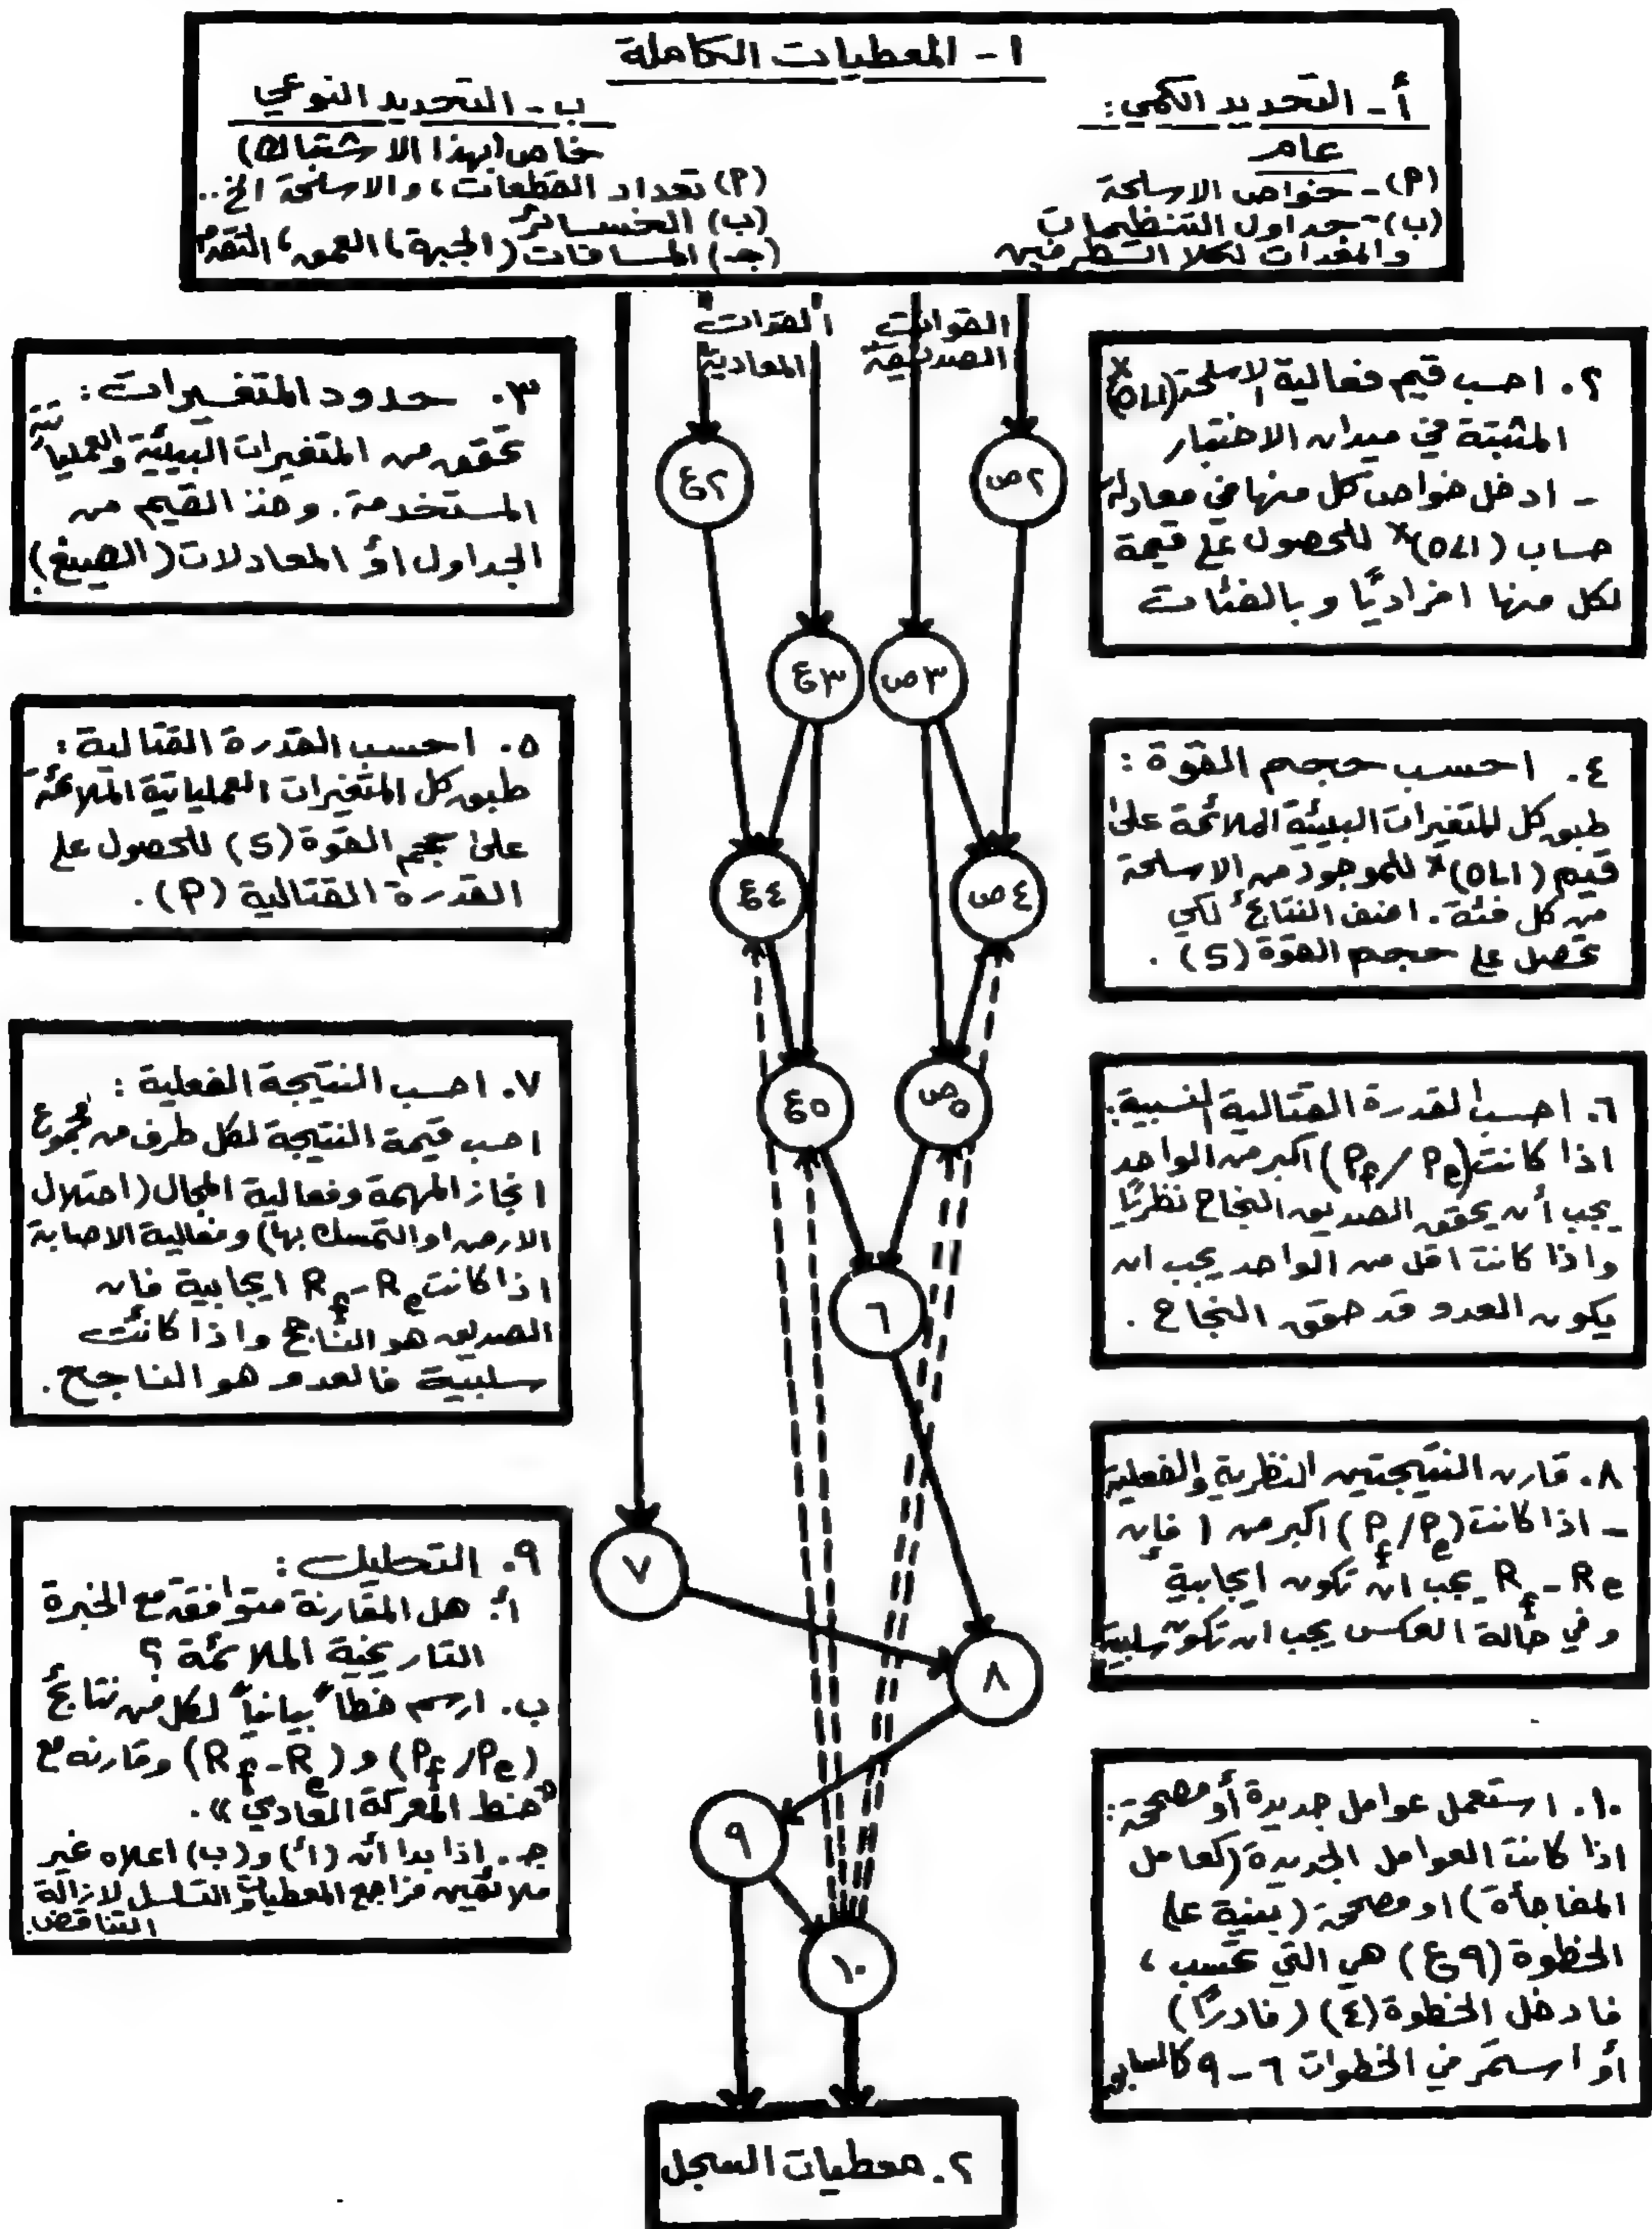 ١ - المعطيات الكاملة
أ - التحديد الكمي:
عام
(٩) - خواص الاسلحة
(ب) - جداول التنظيمات
والمفدات لكلا الطرفين
ب - التحديد النوعي
خاص (بهذا الاشتباك)
(٩) تعداد القطعات، والاسلحة الخ..
(ب) الخسائر
(جـ) المسافات (الجبهة، العمق، التقدم
القوات
الصديقة
القوات
المعادية
٢. احسب قيم فعالية الاسلحة (OLI)*
المثبتة في ميدان الاختبار
- ادخل خواص كل منها في معادلة
حساب (OLI)* للحصول على قيمة
لكل منها افراديًا وبالفئات
٣. حدود المتغيرات:
تحقق من المتغيرات البيئية والعملياتية
المستخدمة. وخذ القيم من
الجداول او المعادلات (الصيغ)
٤. احسب حجم القوة:
طبق كل المتغيرات البيئية الملائمة على
قيم (OLI)* للموجود من الاسلحة
من كل فئة. اضف النتائج لكي
تحصل على حجم القوة (S).
٥. احسب القدرة القتالية:
طبق كل المتغيرات العملياتية الملائمة
على حجم القوة (S) للحصول على
القدرة القتالية (P).
٦. احسب القدرة القتالية النسبية:
اذا كانت (Pf/Pe) اكبر من الواحد
يجب أن يحقق الصديق النجاح نظريًا
واذا كانت اقل من الواحد يجب ان
يكون العدو قد حقق النجاح.
٧. احسب النتيجة الفعلية:
احسب قيمة النتيجة لكل طرف من مجموع
انجاز المهمة وفعالية المجال (احتلال
الارض او التمسك بها) وفعالية الاصابة
اذا كانت Rf-Re ايجابية فان
الصديق هو الناجح واذا كانت
سلبية فالعدو هو الناجح.
٨. قارن النتيجتين النظرية والفعلية
- اذا كانت (Pf/Pe) اكبر من ١ فإن
Rf-Re يجب ان تكون ايجابية
وفي حالة العكس يجب ان تكون سلبية
٩. التحليل:
أ. هل المقارنة متوافقة مع الخبرة
التاريخية الملائمة؟
ب. ارسم خطاً بيانياً لكل من نتائج
(Pf/Pe) و (Rf-Re) وقارنه مع
«خط المعركة العادي».
جـ. اذا بدا أن (أ) و(ب) اعلاه غير
ملائمين فراجع المعطيات والتسلسل لازالة
التناقض.
١٠. استعمل عوامل جديدة أو مصححة:
اذا كانت العوامل الجديدة (كعامل
المفاجأة) او مصححة (بنية على
الخطوة (٩ع) هي التي تحسب،
فادخل الخطوة (٤) (نادرًا)
أو استمر في الخطوات ٦-٩ كالسابق
ع٢
ص٢
ع٣
ص٣
ع٤
ص٤
ع٥
ص٥
٦
٧
٨
٩
١٠
٢. معطيات السجل